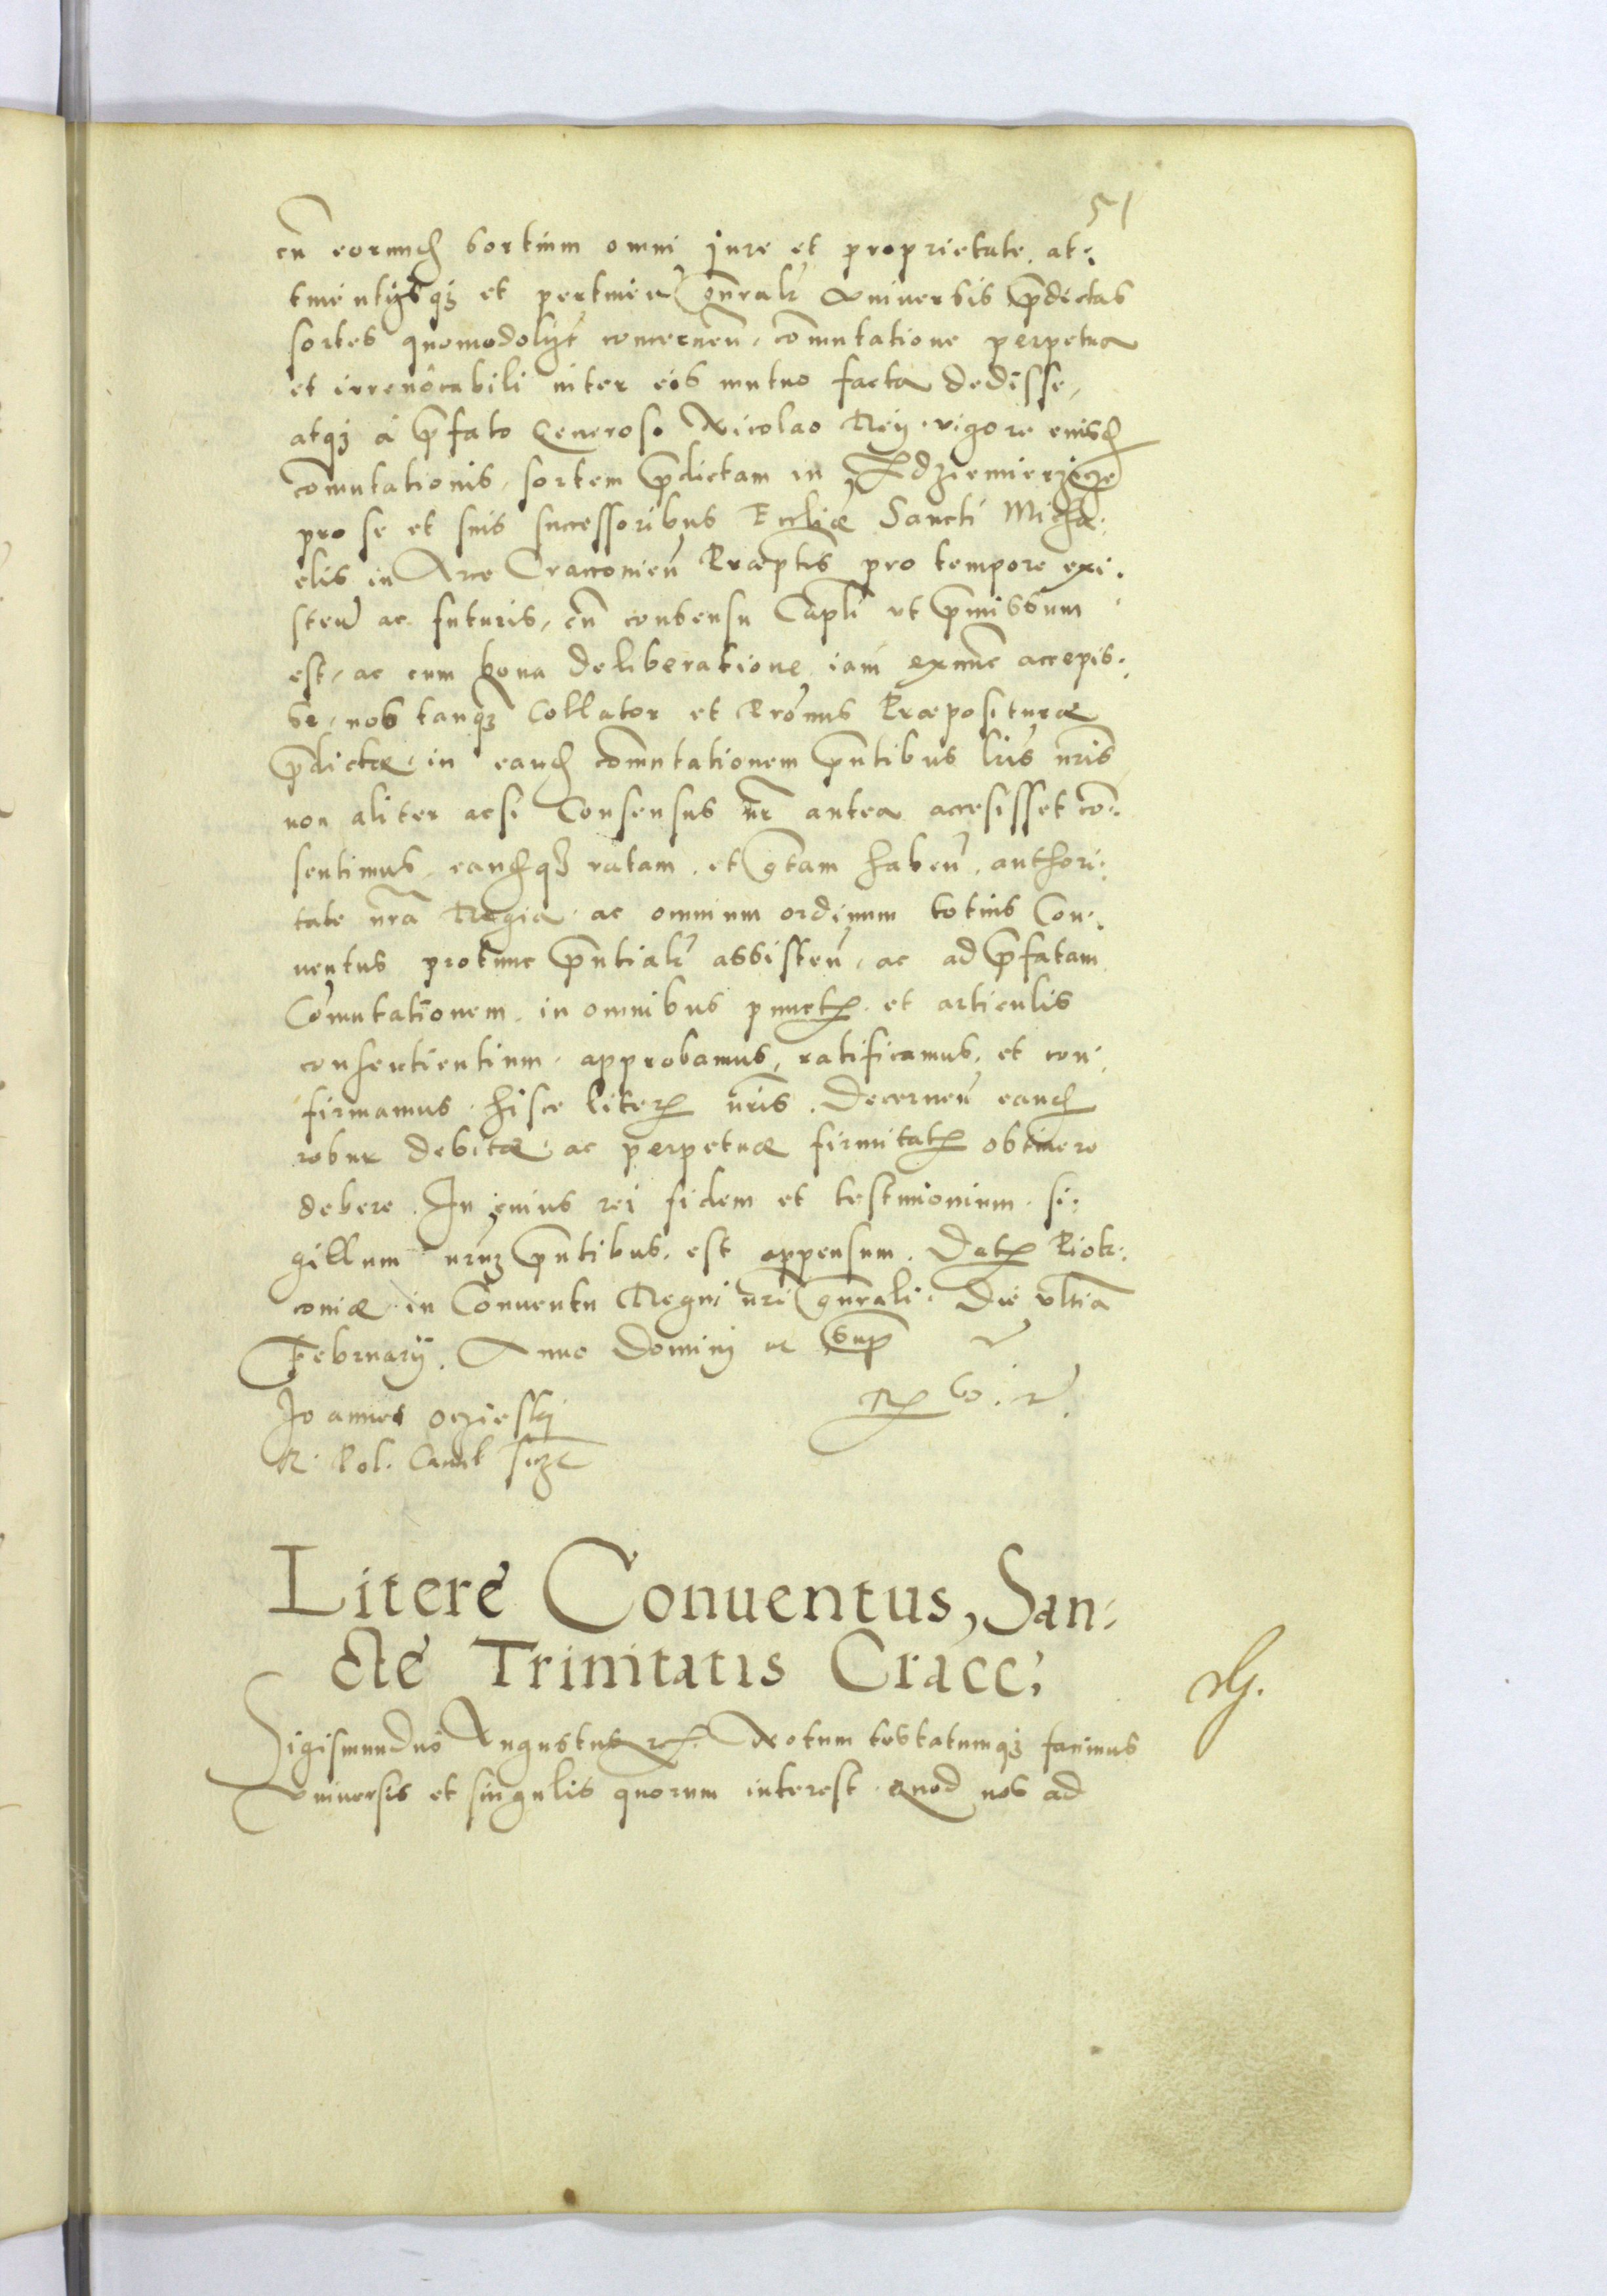 51
cu eorund sortium omni jure et proprietate. at:
tinentijsqз et pertinen gnralr Vniversis pdictas
sortes quomodolibt concernen, comutatione perpetua
et irrevocabili inter eos mutuo facta dedisse,
atqз à pfato Generoso Nicolao Reÿ vigore eiusd
comutationis, sortem pdictam in
pro se et suis successoribus Eccliæ Sancti Micha:
elis in Arce Cracouien Præptis pro tempore exi:
sten ac futuris, cu consensu Capli ut pmissum
est, ac cum bona deliberatione iam exnunc accepis:
se, nos tanqз Collator et Pronus Præpositurae
pdictæ, in eand comutationem pntibus lris nris
non aliter acsi Consensus nr antea accesisset co:
sentimus, eandqз ratam et gtam haben, authori:
tate nra Regia ac omnium ordinum totius Con:
uentus protunc pntialr assisten, ac ad pfatam
Comutationem in omnibus punct et articulis
consentientium, approbamus, ratificamus, et con:
firmamus hisce liter nris. Decernen eand
robur debitæ ac perpetuæ firmitat obtinere
debere. In cuius rei fidem et testimonium si:
gillum nruз pntibus est appensum. Dat Piotr:
coniæ in Conuentu Regni nri gnrali. Die ultia
Februarij. Anno Domini ut sup
Joannes oczieskj
R. Pol. Cancl
Litere Conuentus, San:
cte Trinitatis Cracc,
Sigismundus Augustus Notum testatumqз facimus
Vniversis et singulis quorum interest. Quod nos ad